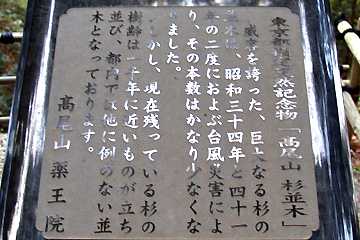 東京都指定天然記念物「高尾山 杉並木」
威容を誇った、巨大なる杉の
並木は、昭和三十四年と四十一
年の二度におよぶ台風災害によ
り、その本数はかなり少なくな
りました。
しかし、現在残っている杉の
樹齢は一千年に近いものが立ち
並び、都内では他に例のない並
木となっております。
高尾山 薬王院